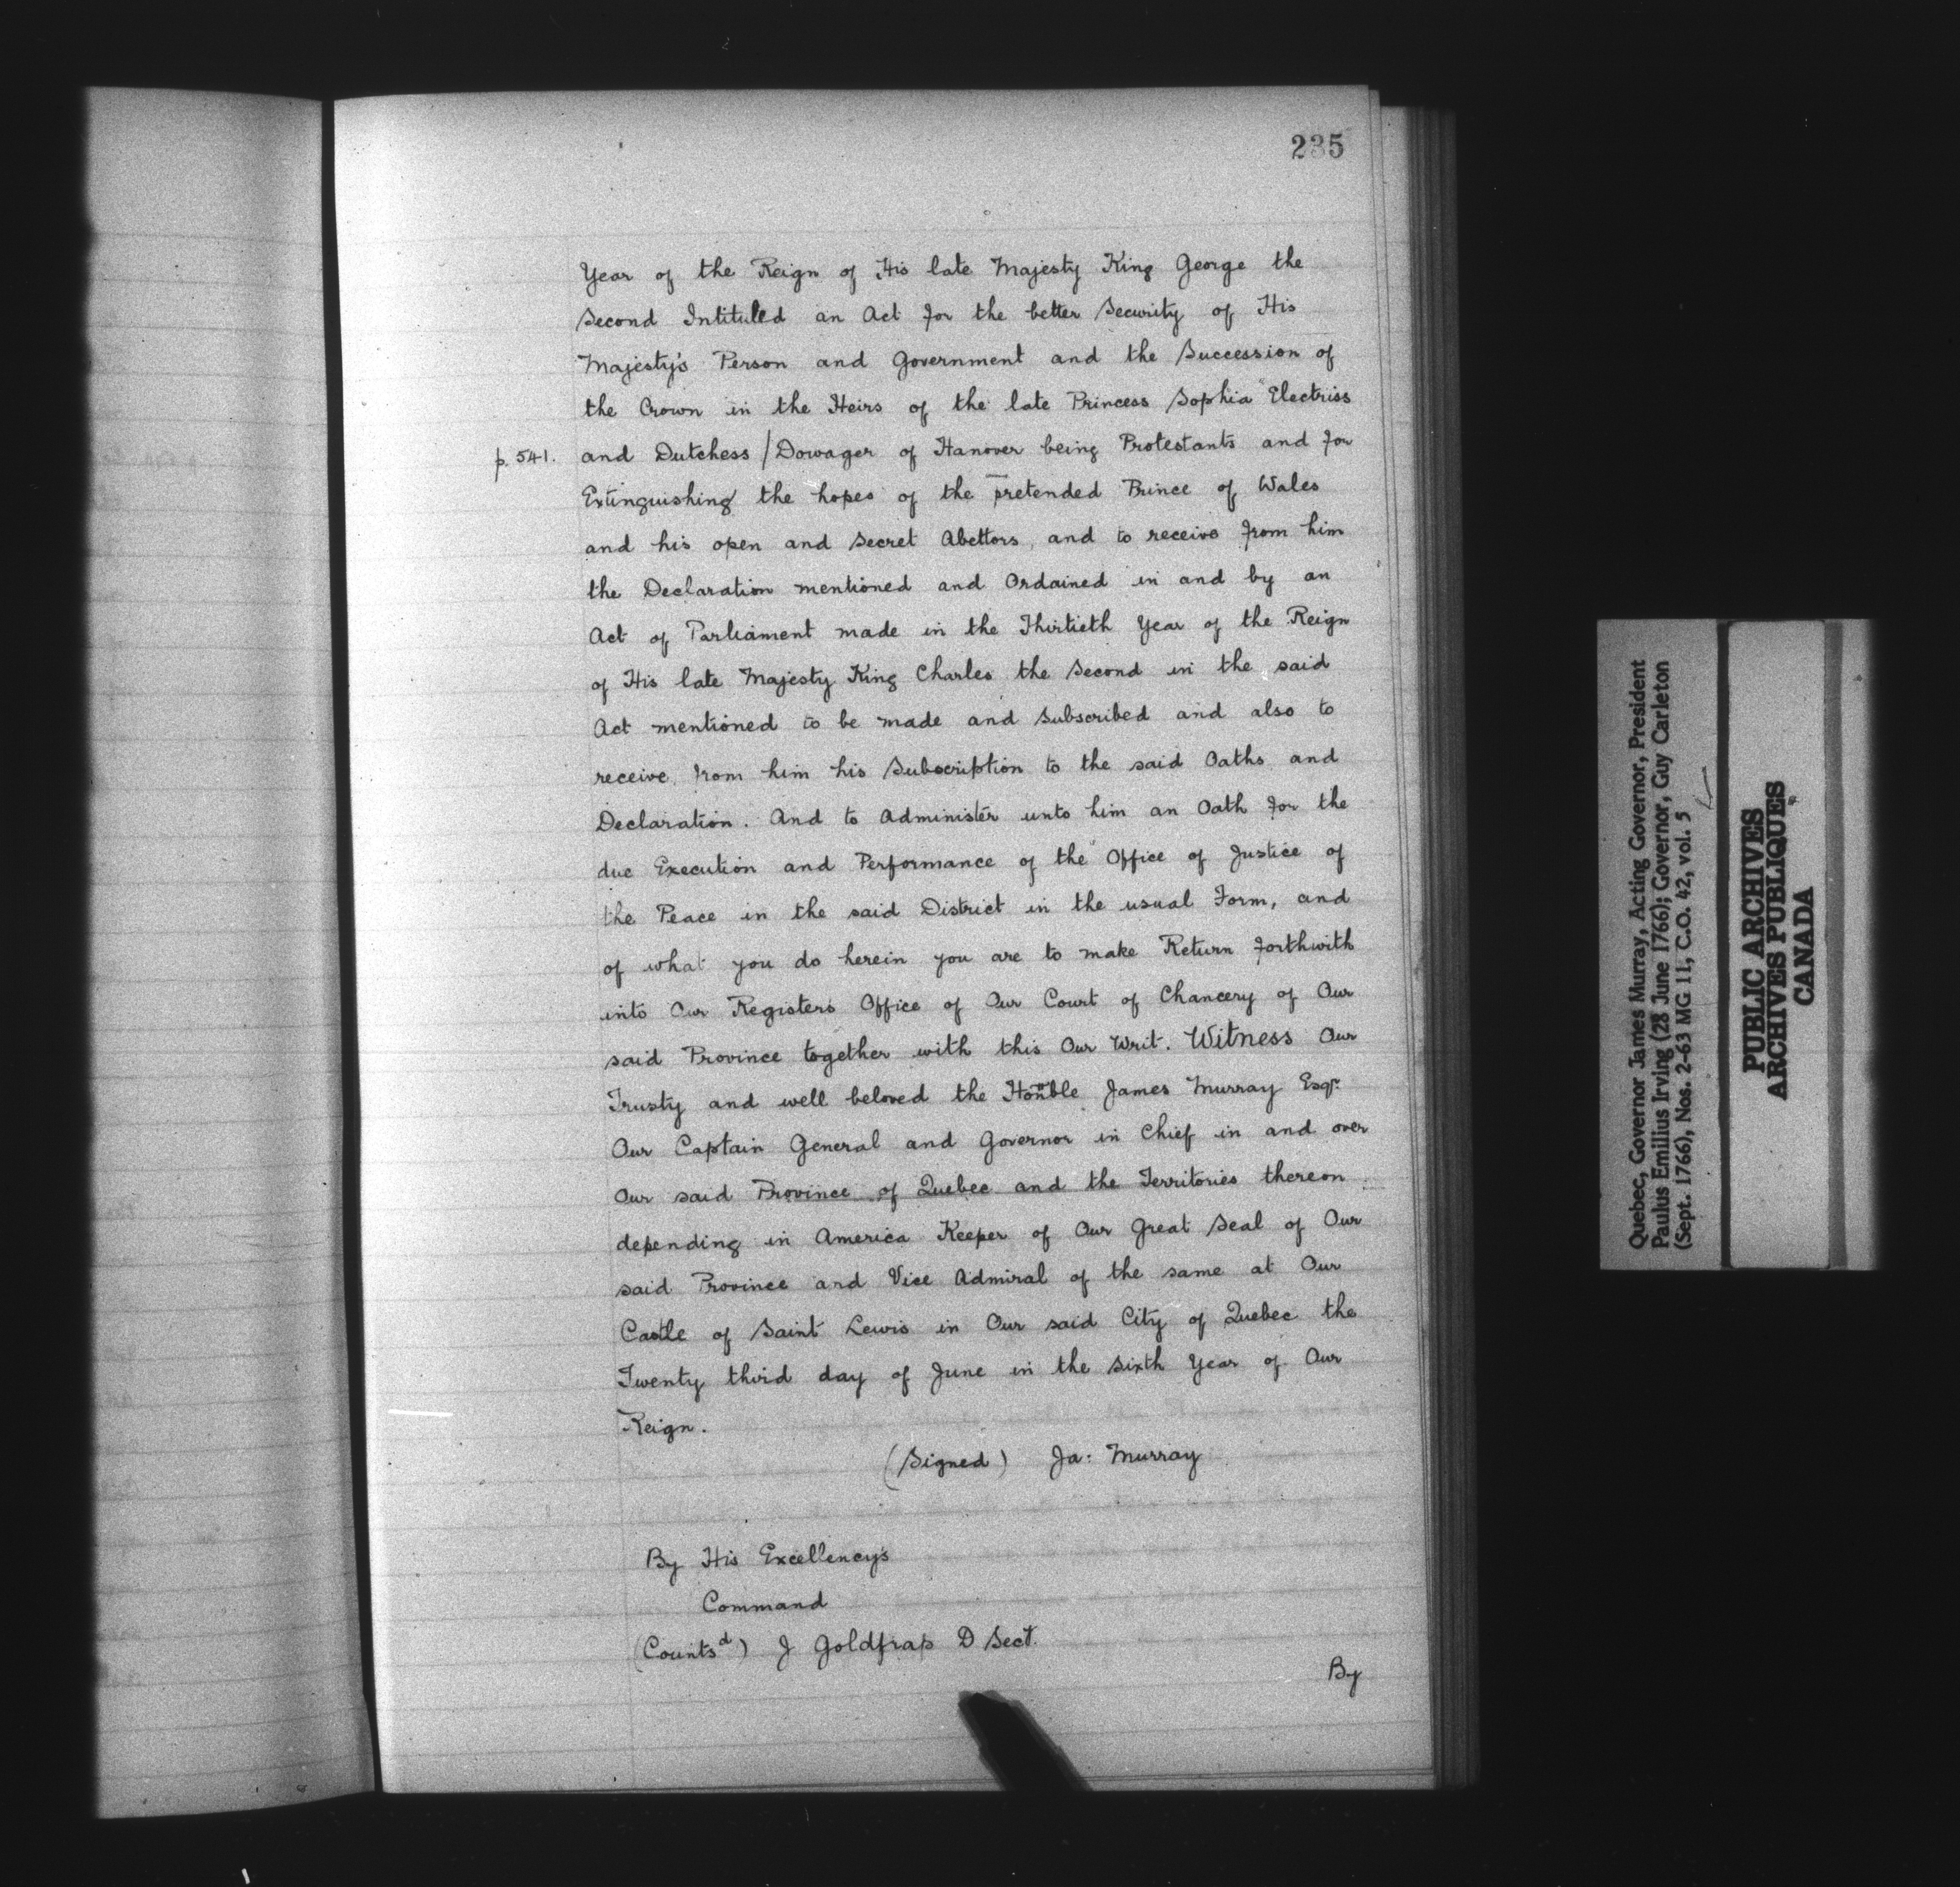 235
Year of the Reign of His late Majesty King George the
Second Intituled an Act for the better Security of His
Majesty's Person and Government and the Succession of
the Crown in the Heirs of the late Princess Sophia Electriss
p. 541. and Dutchess / Dowager of Hanover being Protestants and for
Extinguishing the hopes of the pretended Prince of Wales
and his open and Secret Abettors, and to receive from him
the Declaration mentioned and Ordained in and by an
Act of Parliament made in the Thirtieth Year of the Reign
of His late Majesty King Charles the Second in the said
Act mentioned to be made and Subscribed and also to
receive from him his Subscription to the said Oaths and
Declaration. And to Administer unto him an Oath for the
due Execution and Performance of the Office of Justice of
the Peace in the said District in the usual Form, and
of what you do herein you are to make Return forthwith
into Our Registers Office of Our Court of Chancery of Our
said Province together with this Our Writ. Witness Our
Trusty and well beloved the Honble James Murray Esqr.
Our Captain General and Governor in Chief in and over
Our said Province of Quebec and the Territories thereon
depending in America Keeper of Our Great Seal of Our
said Province and Vice Admiral of the same at Our
Castle of Saint Lewis in Our said City of Quebec the
Twenty third day of June in the Sixth Year of Our
Reign.
(Signed) Ja: Murray
By His Excellency's
Command
(Countsd) J Goldfrap D Sect.
By
Quebec, Governor James Murray, Acting Governor, President
Paulus Emilius Irving (28 June 1766); Governor, Guy Carleton
(Sept. 1766), Nos. 2-63 MG 11, C.O. 42, vol. 5
PUBLIC ARCHIVES
ARCHIVES PUBLIQUES
CANADA